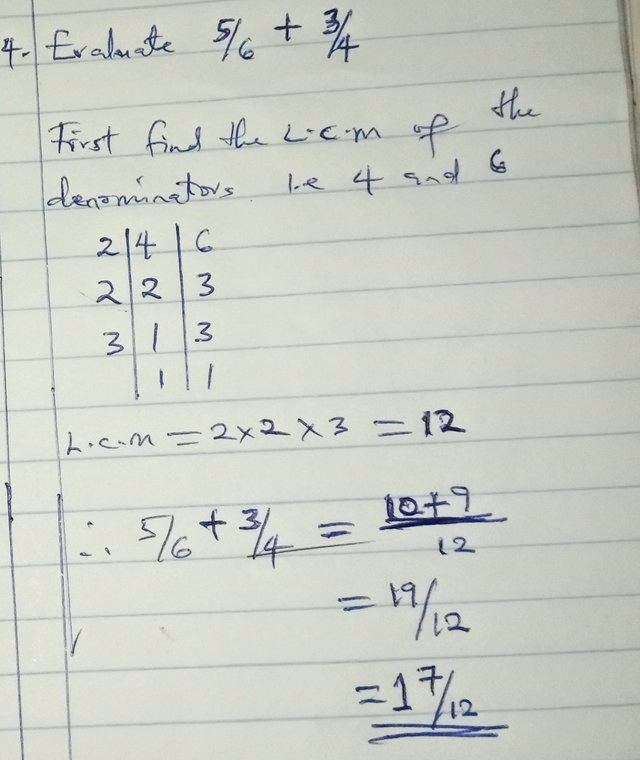 4. Evaluate 5/6 + 3/4
First find the L.C.M of the
denominators i.e 4 and 6
2 | 4 | 6
2 | 2 | 3
3 | 1 | 3
| 1 | 1
L.C.M = 2 x 2 x 3 = 12
∴ 5/6 + 3/4 = 10+9
12
= 19/12
= 1 7/12